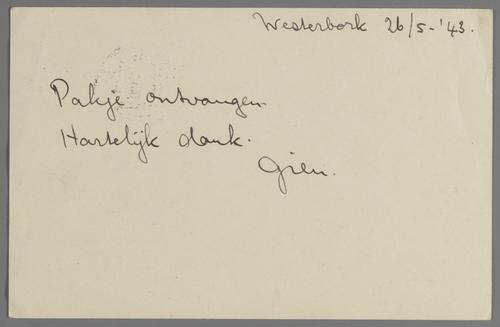 Westerbork 26/5-'43.
Pakje ontvangen.
Hartelijk dank.
Gien.